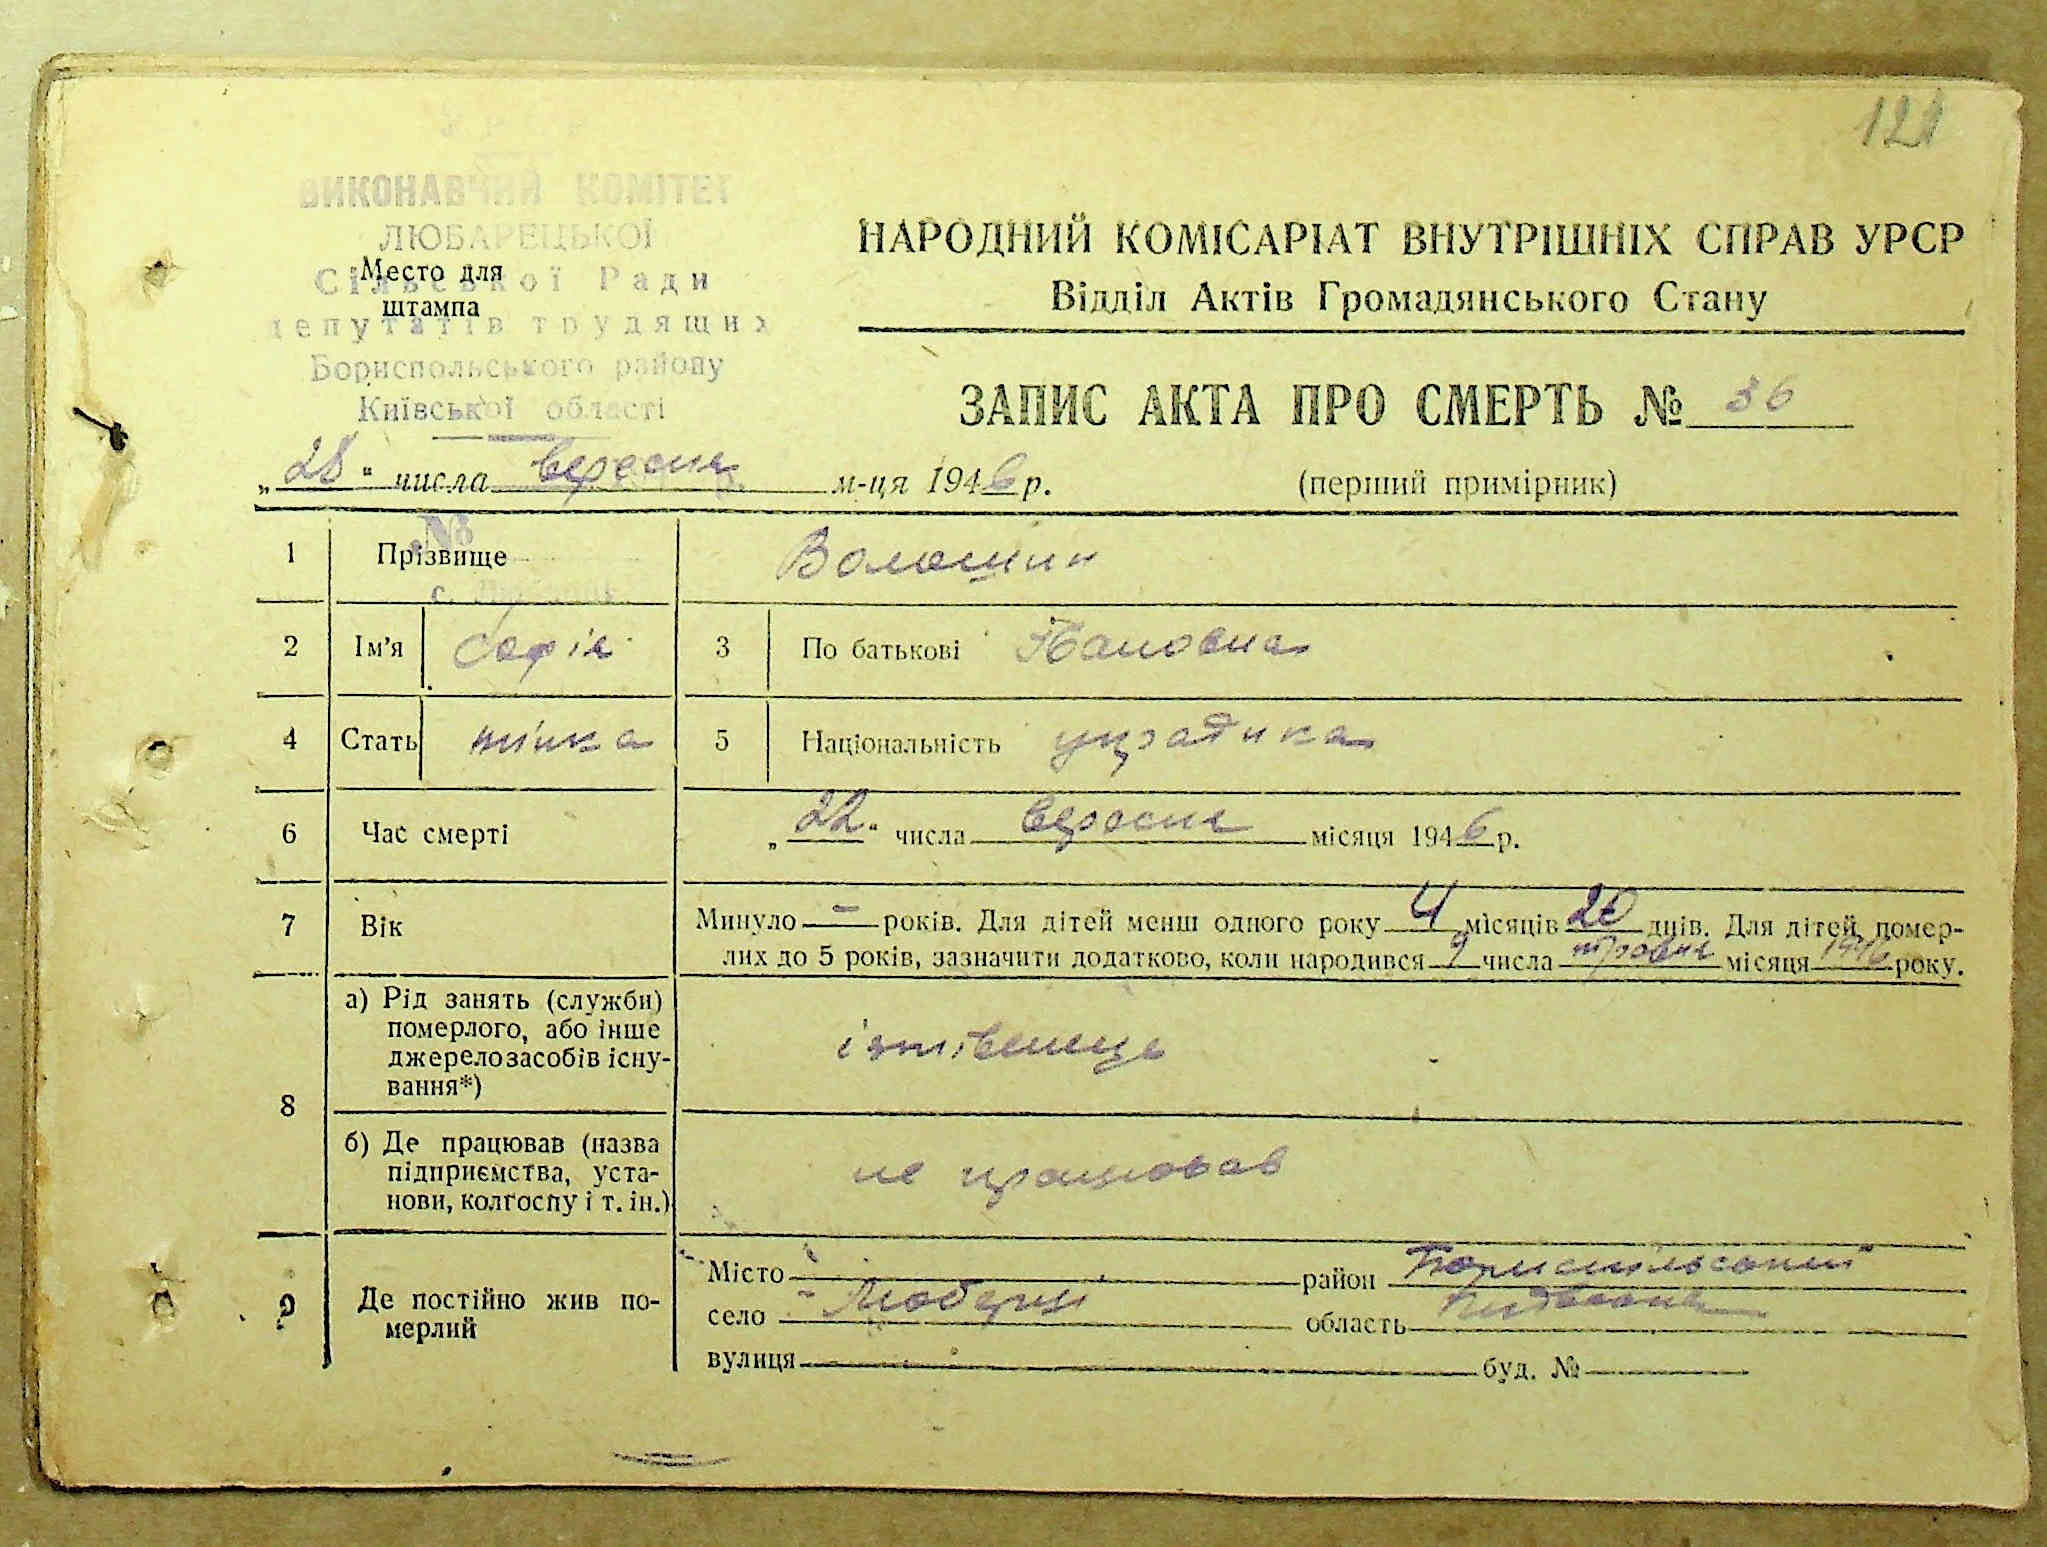 121
УРСР
ВИКОНАВЧИЙ КОМІТЕТ
ЛЮБАРЕЦЬКОЇ
Сільської Ради
депутатів трудящих
Бориспольського району
Київської області
Место для
штампа
НАРОДНИЙ КОМІСАРІАТ ВНУТРІШНІХ СПРАВ УРСР
Відділ Актів Громадянського Стану
ЗАПИС АКТА ПРО СМЕРТЬ № 36
„28“ числа вересня м-ця 1946 р.
(перший примірник)
№
1 Прізвище Волошин
2 Ім'я Софія 3 По батькові
4 Стать жінка 5 Національність українка
6 Час смерті „22“ числа вересня місяця 1946 р.
7 Вік Минуло - років. Для дітей менш одного року 4 місяців 20 днів. Для дітей, помер-
лих до 5 років, зазначити додатково, коли народився 9 числа травня місяця 1946 року.
8 а) Рід занять (служби)
померлого, або інше
джерело засобів існу-
вання*) іждівенець
б) Де працював (назва
підприємства, уста-
нови, колгоспу і т. ін.) не працював
9 Де постійно жив по-
мерлий
Місто - район Бориспільський
село Любарці область Київська
вулиця буд. №